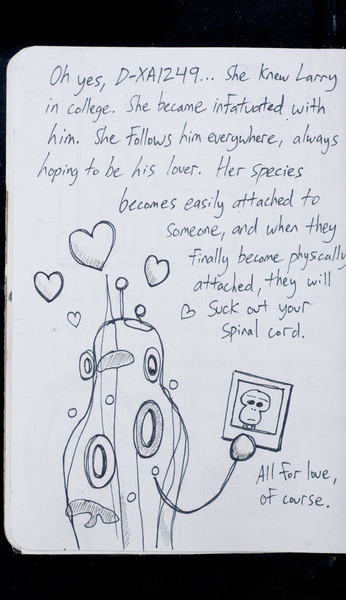 Oh yes, D-XA1249... She knew Larry
in college. She became infatuated with
him. She follows him everywhere, always
hoping to be his lover. Her species
becomes easily attached to
someone, and when they
finally become physically
attached, they will
suck out your
spinal cord.
All for love,
of course.